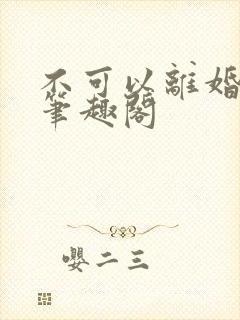 不可以離婚
筆趣閣
嬰二三